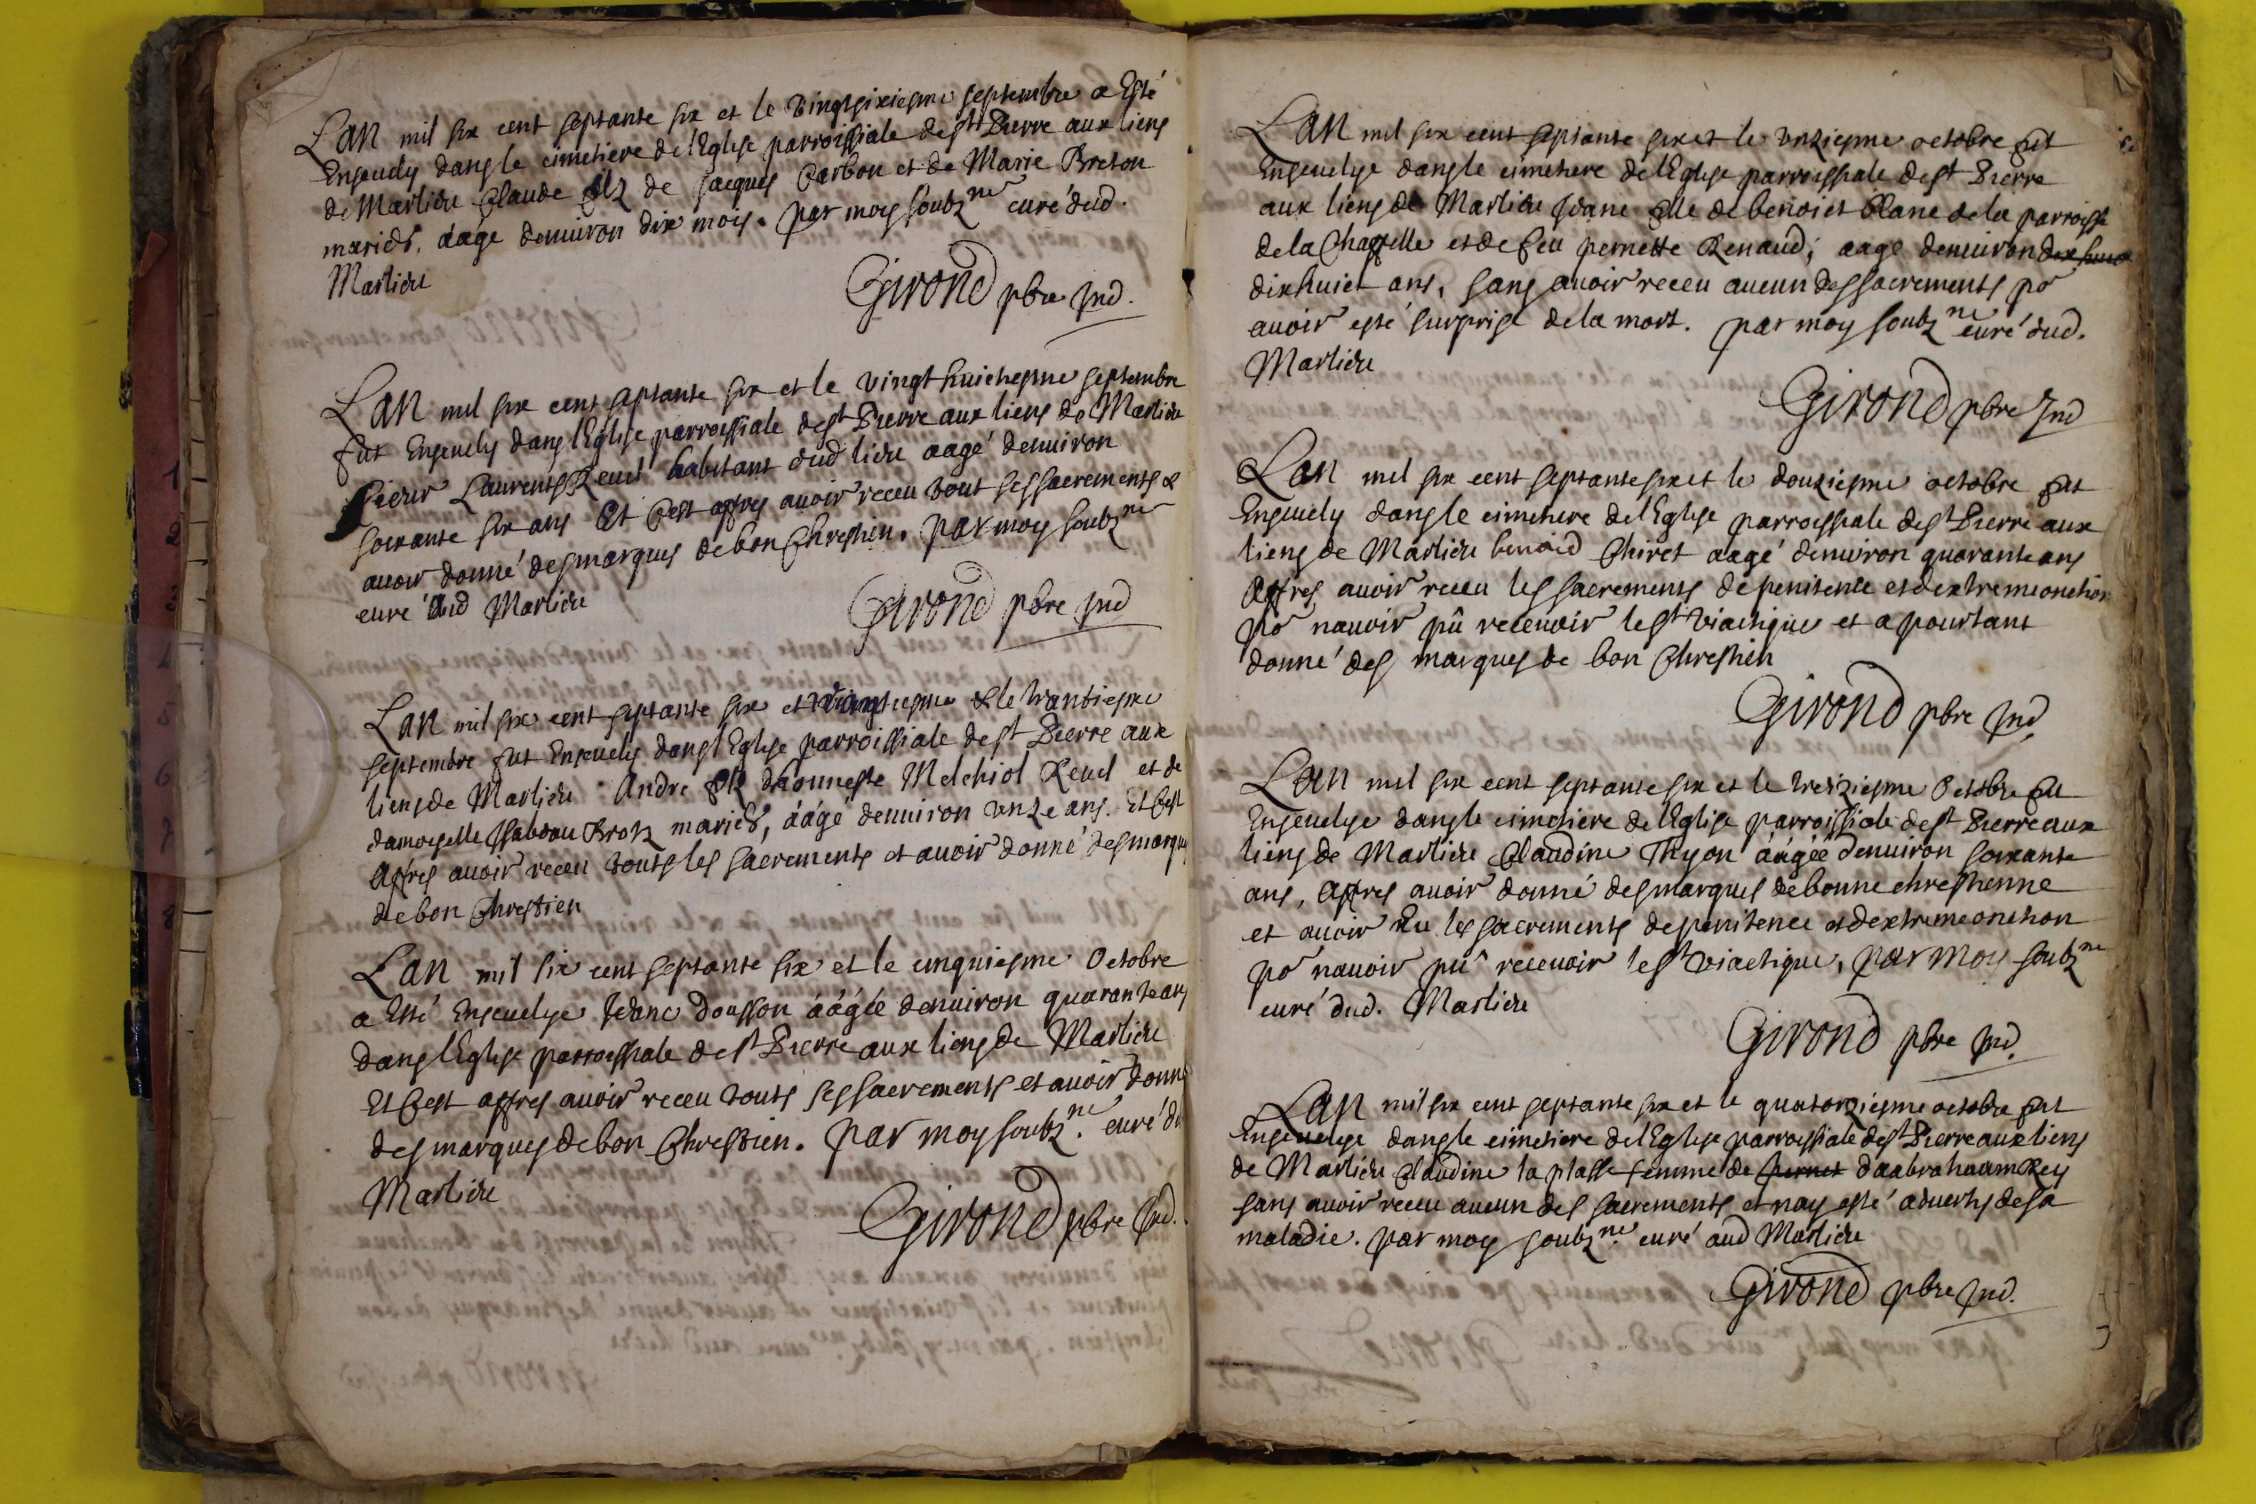 Lan mil six cent septante six et le vingtsixiesme septembre a Esté
Enseuely dans le cimetiere de l'Eglise parroissiale de st Pierre aux liens
de Marlieu Claude filz de Jacques Carbon et de Marie Breton
mariés, áage denuiron dix mois. par moy soubzne curé dud.
Marlieu
Girond pbre Ind.
Lan mil six cent septante six et le vingt huictiesme septembre
fut Enseuely dans lEglise parroissiale de st Pierre aux liens de Marlieu
sieur Laurents Reuel habitant dud lieu aagé denuiron
soixante six ans Et C'est appres auoir receu tout ses sacrements &
auoir donné des marques de bon Chrestien. par moy soubzne
curé dud Marlieu
Girond pbre Ind
Lan mil six cent septante six et vingtiesme & le trantiesme
septembre fut Enseuely dans lEglise parroissiale de st Pierre aux
liens de Marlieu Andre filz dhonneste Melchiol Reuel et de
damoyselle Isabeau Brotz mariés, áágé denuiron unze ans. Et C'est
appres auoir receu touts les sacrements et auoir donné des marques
de bon Chrestien
Lan mil six cent septante six et le cinquiesme Octobre
a Esté Enseuelye Jeane Dousson áágée denuiron quarante ans
dans l'Eglise parroissiale de st Pierre aux liens de Marlieu
Et C'est appres auoir receu touts ses sacrements et auoir donné
des marques de bon Chrestien. par moy soubzne. curé du
Marlieu
Girond pbre Ind.
Lan mil six cent septante six et le unziesme octobre fut
Enseuelye dans le cimetiere de lEglise parroissiale de st Pierre
aux liens de Marlieu Jeane fille de benoict Clane de la parroisse
de la Chappelle et de feu pernette Renaud, aage denuiron dix huict
dixhuict ans, sans auoir receu aucun des sacrements po
auoir esté surprise de la mort. par moy soubzne curé dud.
Marlieu
Girond pbre Ind
Lan mil six cent septante six et le douziesme octobre fut
Enseuely dans le cimetiere de lEglise parroissiale de st Pierre aux
liens de Marlieu benoid Chiret aagé denuiron quarante ans
Appres auoir receu les sacrements de penitence et dextremeonction
po nauoir pû receuoir le st viatique et a pourtant
donné des marques de bon Chrestien
Girond pbre Ind.
Lan mil six cent septante six et le treiziesme Octobre fut
Enseuelye dans le cimetiere de lEglise parroissiale de st Pierre aux
liens de Marlieu Claudine Thyon áágée denuiron soixante
ans, appres auoir donné des marques de bonne chrestienne
et auoir Eu les sacrements de penitence et dextreme onction
po nauoir pû receuoir le st viatique, par moy soubzne
curé dud. Marlieu
Girond pbre Ind.
Lan mil six cent septante six et le quatorziesme octobre fut
Enseuelye dans le cimetiere de lEglise parroissiale de st Pierre aux liens
de Marlieu Claudine la plasse femme de pernet daabrahaam Rey
sans auoir receu aucun des sacrements et nay esté aduerty de sa
maladie. par moy soubzne. curé aud Marlieu
Girond pbre Ind.